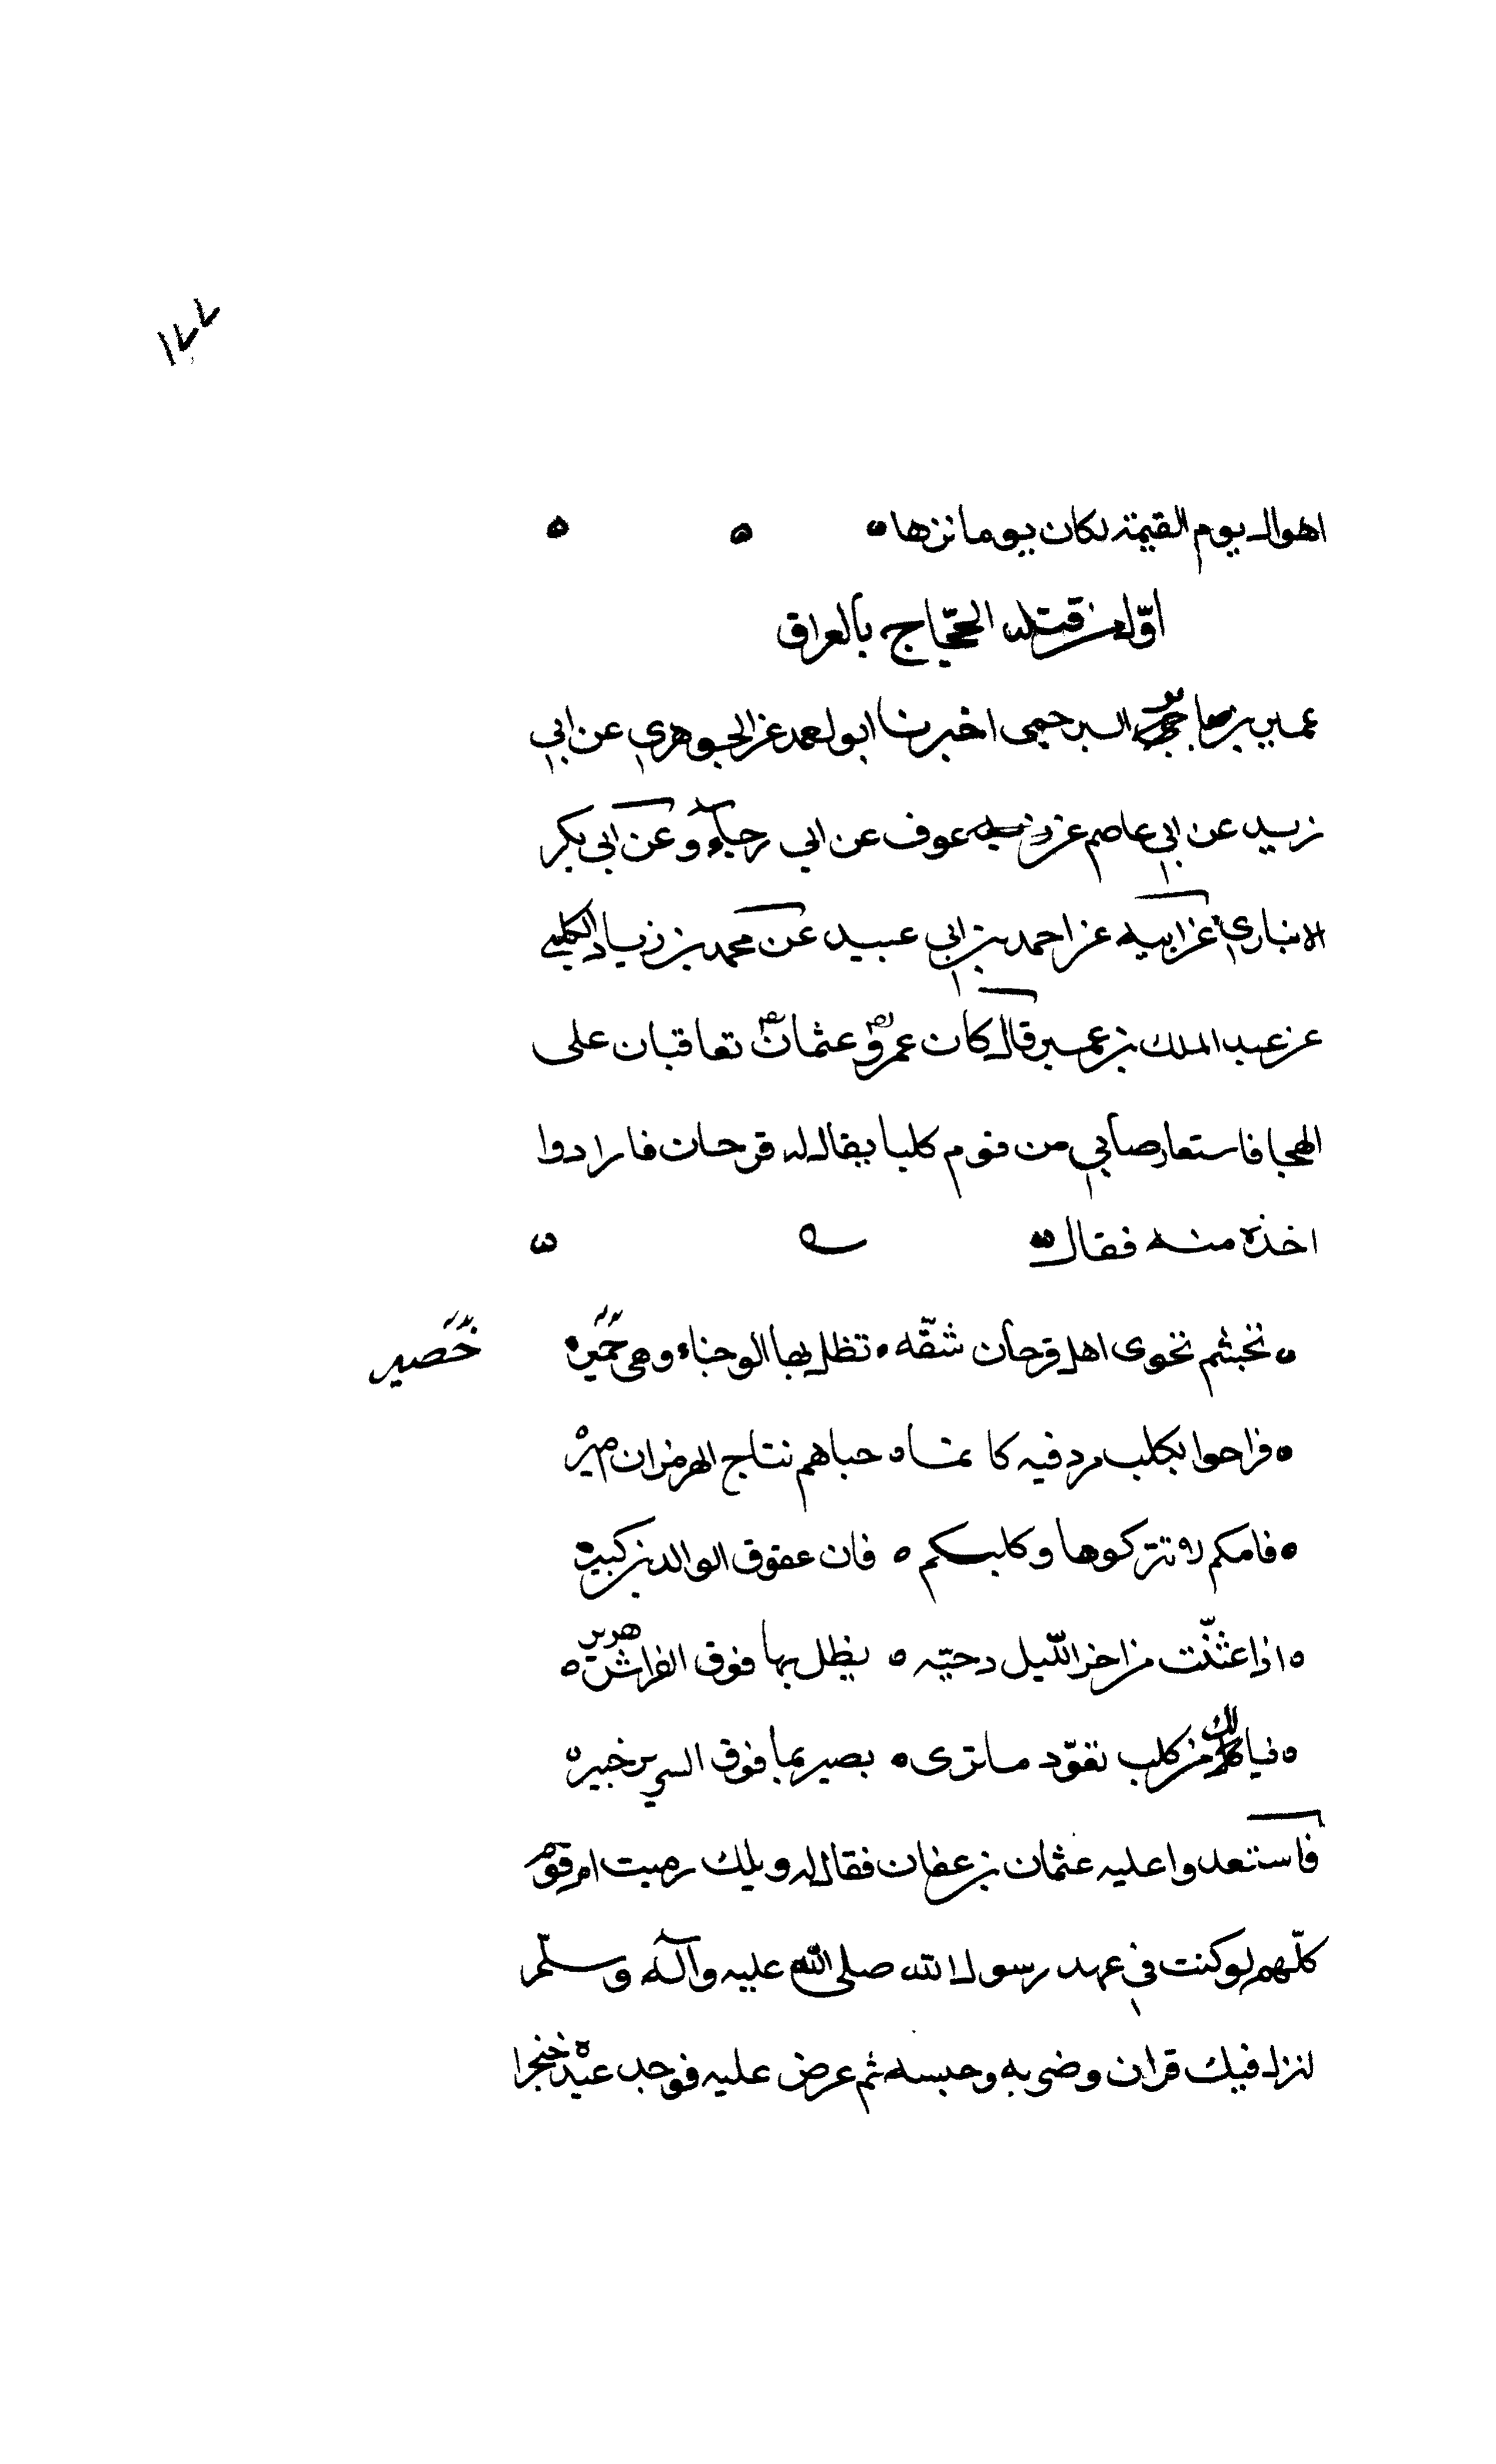 ١٧٧
اهوال يوم القيمة لكان يوما نزها
اوّل من قتله الحجّاج بالعراق
عمير بن البرجمي اخبرنا ابو احمد عن الجوهري عن ابي
زيد عن ابي عاصم عن عوف عن ابي رجاء وعن ابي بكر
الانباري عن ابيه عن احمد بن ابي عبيد عن محمد بن زياد الكلبي
عن عبد الملك بن عمير قال كان عمر وعثمان تعاقبان على
الهجا فاستعار ضابي من قوم كلبا يقال له قرحان فارادوا
اخذه منه فقال
تجشم نحوى اهل قرحان شقّه تظل بها الوجناء وهى
فراحوا بكلب مردفيه كانما حباهم بتاج الهرمزان امير
فامكم لا تتركوها وكلبكم فان عقوق الوالدين كبير
اذا عثنت من اخر الليل يظل بها فوق الفراش هرير
فيالك من كلب تعوّد ما ترى بصير بما فوق السرير خبير
فاستعدوا عليه عثمان بن عفان فقال له ويلك رميت ام قوم
كلّهم لو كنت في عهد رسول الله صلى الله عليه وآله وسلّم
لنزل فيك قران وضربه وحبسه ثم عرض عليه فوجد عنده خنجرا